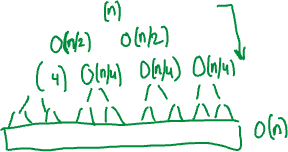 (n)
O(n/2) O(n/2)
(4) O(n/4) O(n/4) O(n/4)
O(n)